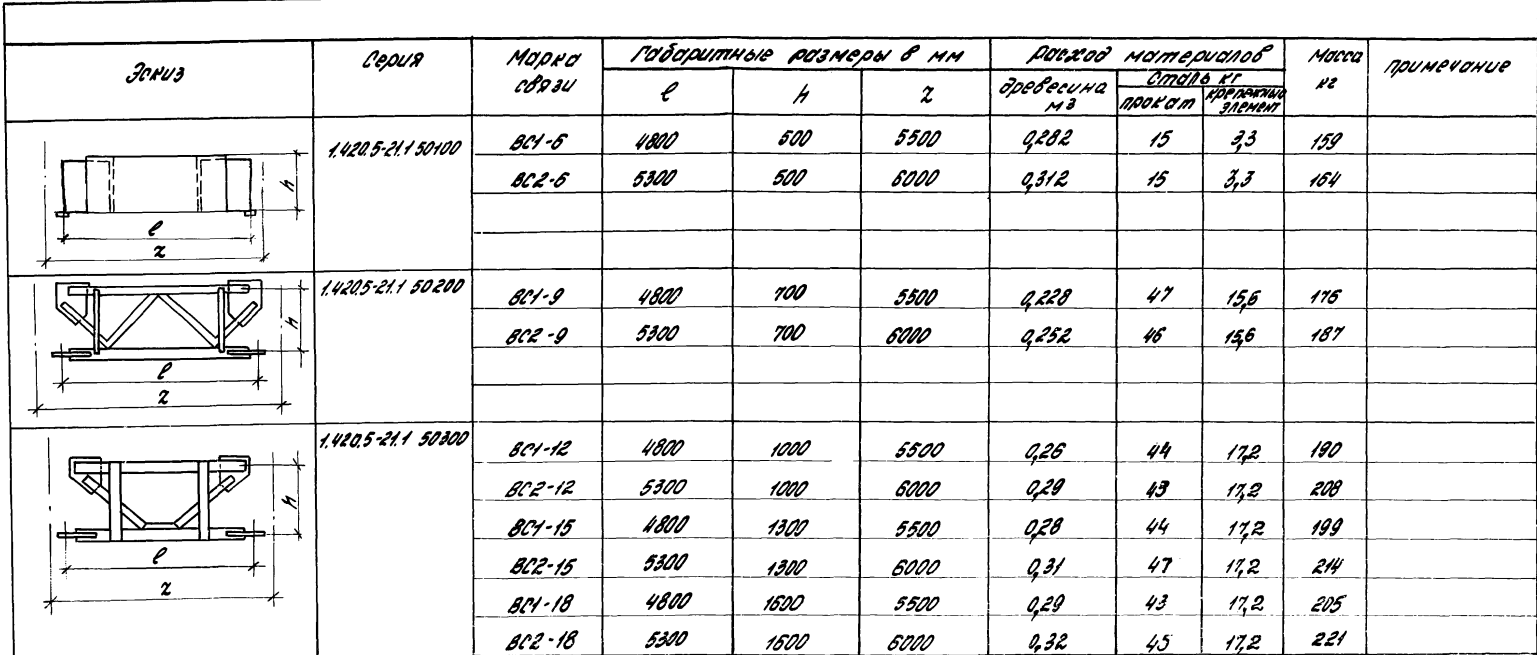 Эскиз Серия Марка связи Габаритные размеры в мм Расход материалов Масса кг Примечание
ℓ h z древесина м3 Сталь кг
прокат крепежный элемент
1.420.5-21.1 50100 ВС1-6 4800 500 5500 0,282 15 3,3 159
ВС2-6 5300 500 6000 0,312 15 3,3 164
h
ℓ
z
1.420.5-21.1 50200 ВС1-9 4800 700 5500 0,228 47 15,6 176
ВС2-9 5300 700 6000 0,252 46 15,6 187
h
ℓ
z
1.420.5-21.1 50300 ВС1-12 4800 1000 5500 0,26 44 17,2 190
ВС2-12 5300 1000 6000 0,29 43 17,2 208
h
ВС1-15 4800 1300 5500 0,28 44 17,2 199
ℓ
ВС2-15 5300 1300 6000 0,31 47 17,2 214
z
ВС1-18 4800 1600 5500 0,29 43 17,2 205
ВС2-18 5300 1600 6000 0,32 45 17,2 221